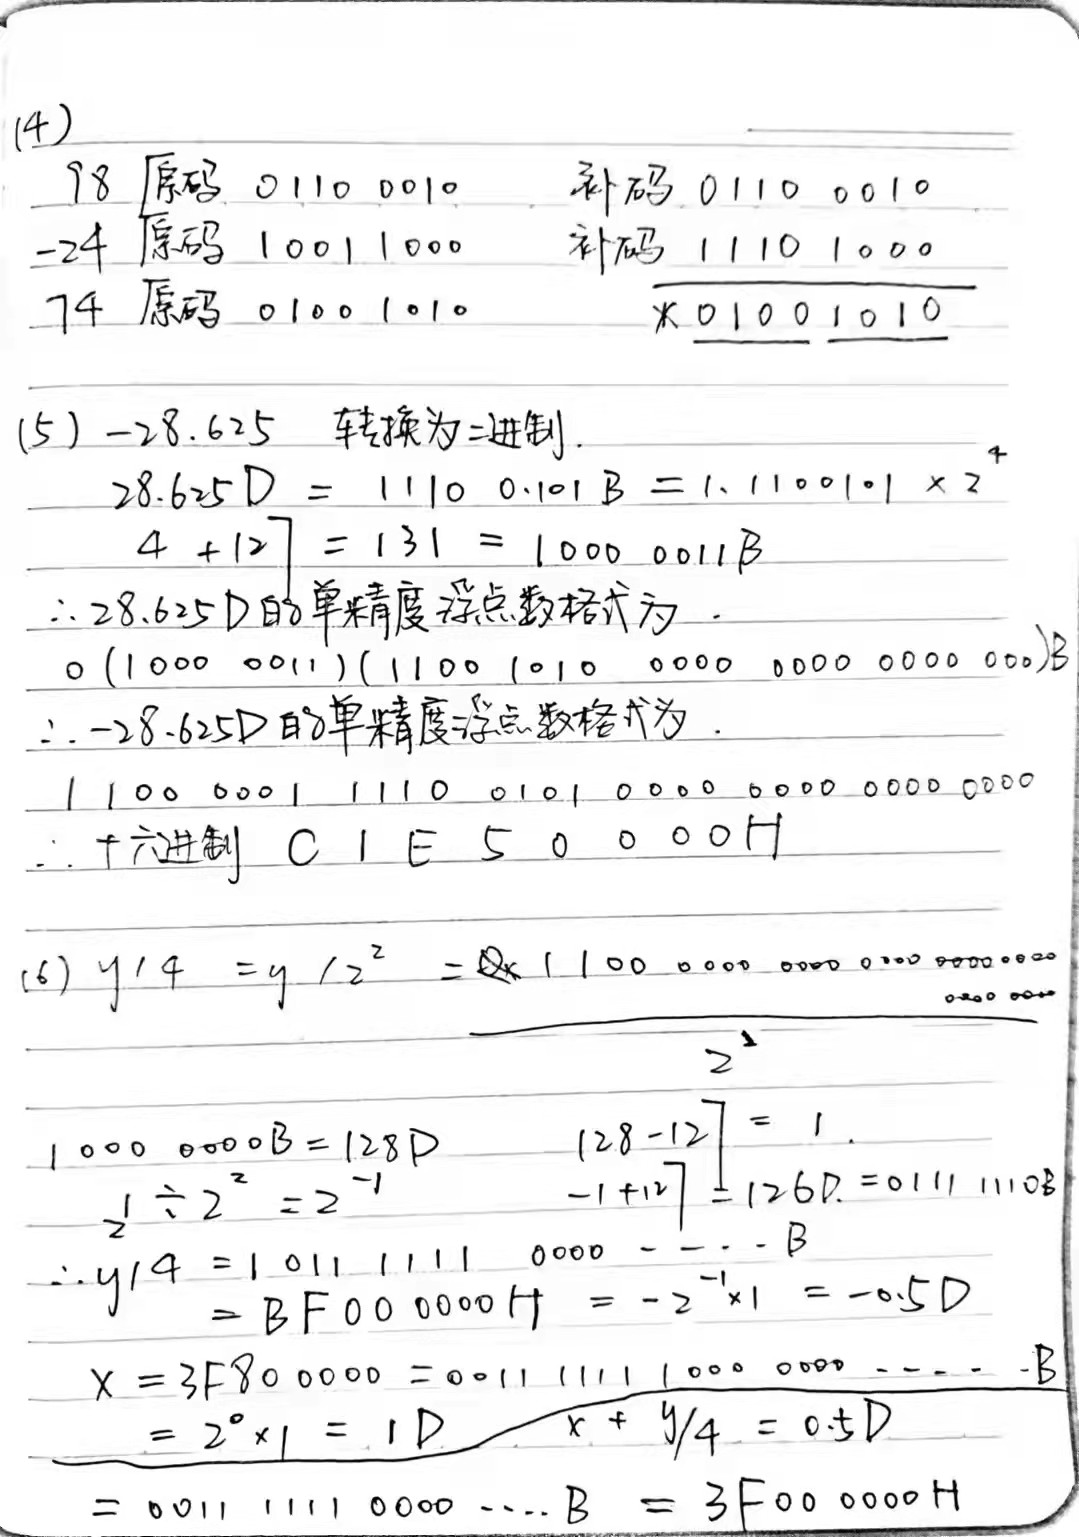 (4)
98 原码 0110 0010 补码 0110 0010
-24 原码 1001 1000 补码 1110 1000
74 原码 0100 1010 0100 1010
(5) -28.625 转换为二进制.
28.625D = 1110 0.101B = 1.1100101 × 2^4
4 + 127 = 131 = 1000 0011B
∴28.625D的单精度浮点数格式为.
0(1000 0011)(1100 1010 0000 0000 0000 000)B
∴-28.625D的单精度浮点数格式为.
1100 0001 1110 0101 0000 0000 0000 0000
∴十六进制 C 1 E 5 0 0 0 0 H
(6) y/4 = y/2^2 = 1100 0000 0000 0000 0000 0000
0000 0000
2^2
1000 0000B = 128D 128-127 = 1.
2^1 ÷ 2^2 = 2^-1 -1+127 = 126D. = 0111 1110B
∴y/4 = 1011 1111 0000 - - . . B
= BF00 0000H = -2^-1×1 = -0.5D
x = 3F80 0000 = 0011 1111 1000 0000 - - - - - -B
= 2^0×1 = 1D x + y/4 = 0.5D
= 0011 1111 0000 ····B = 3F00 0000H